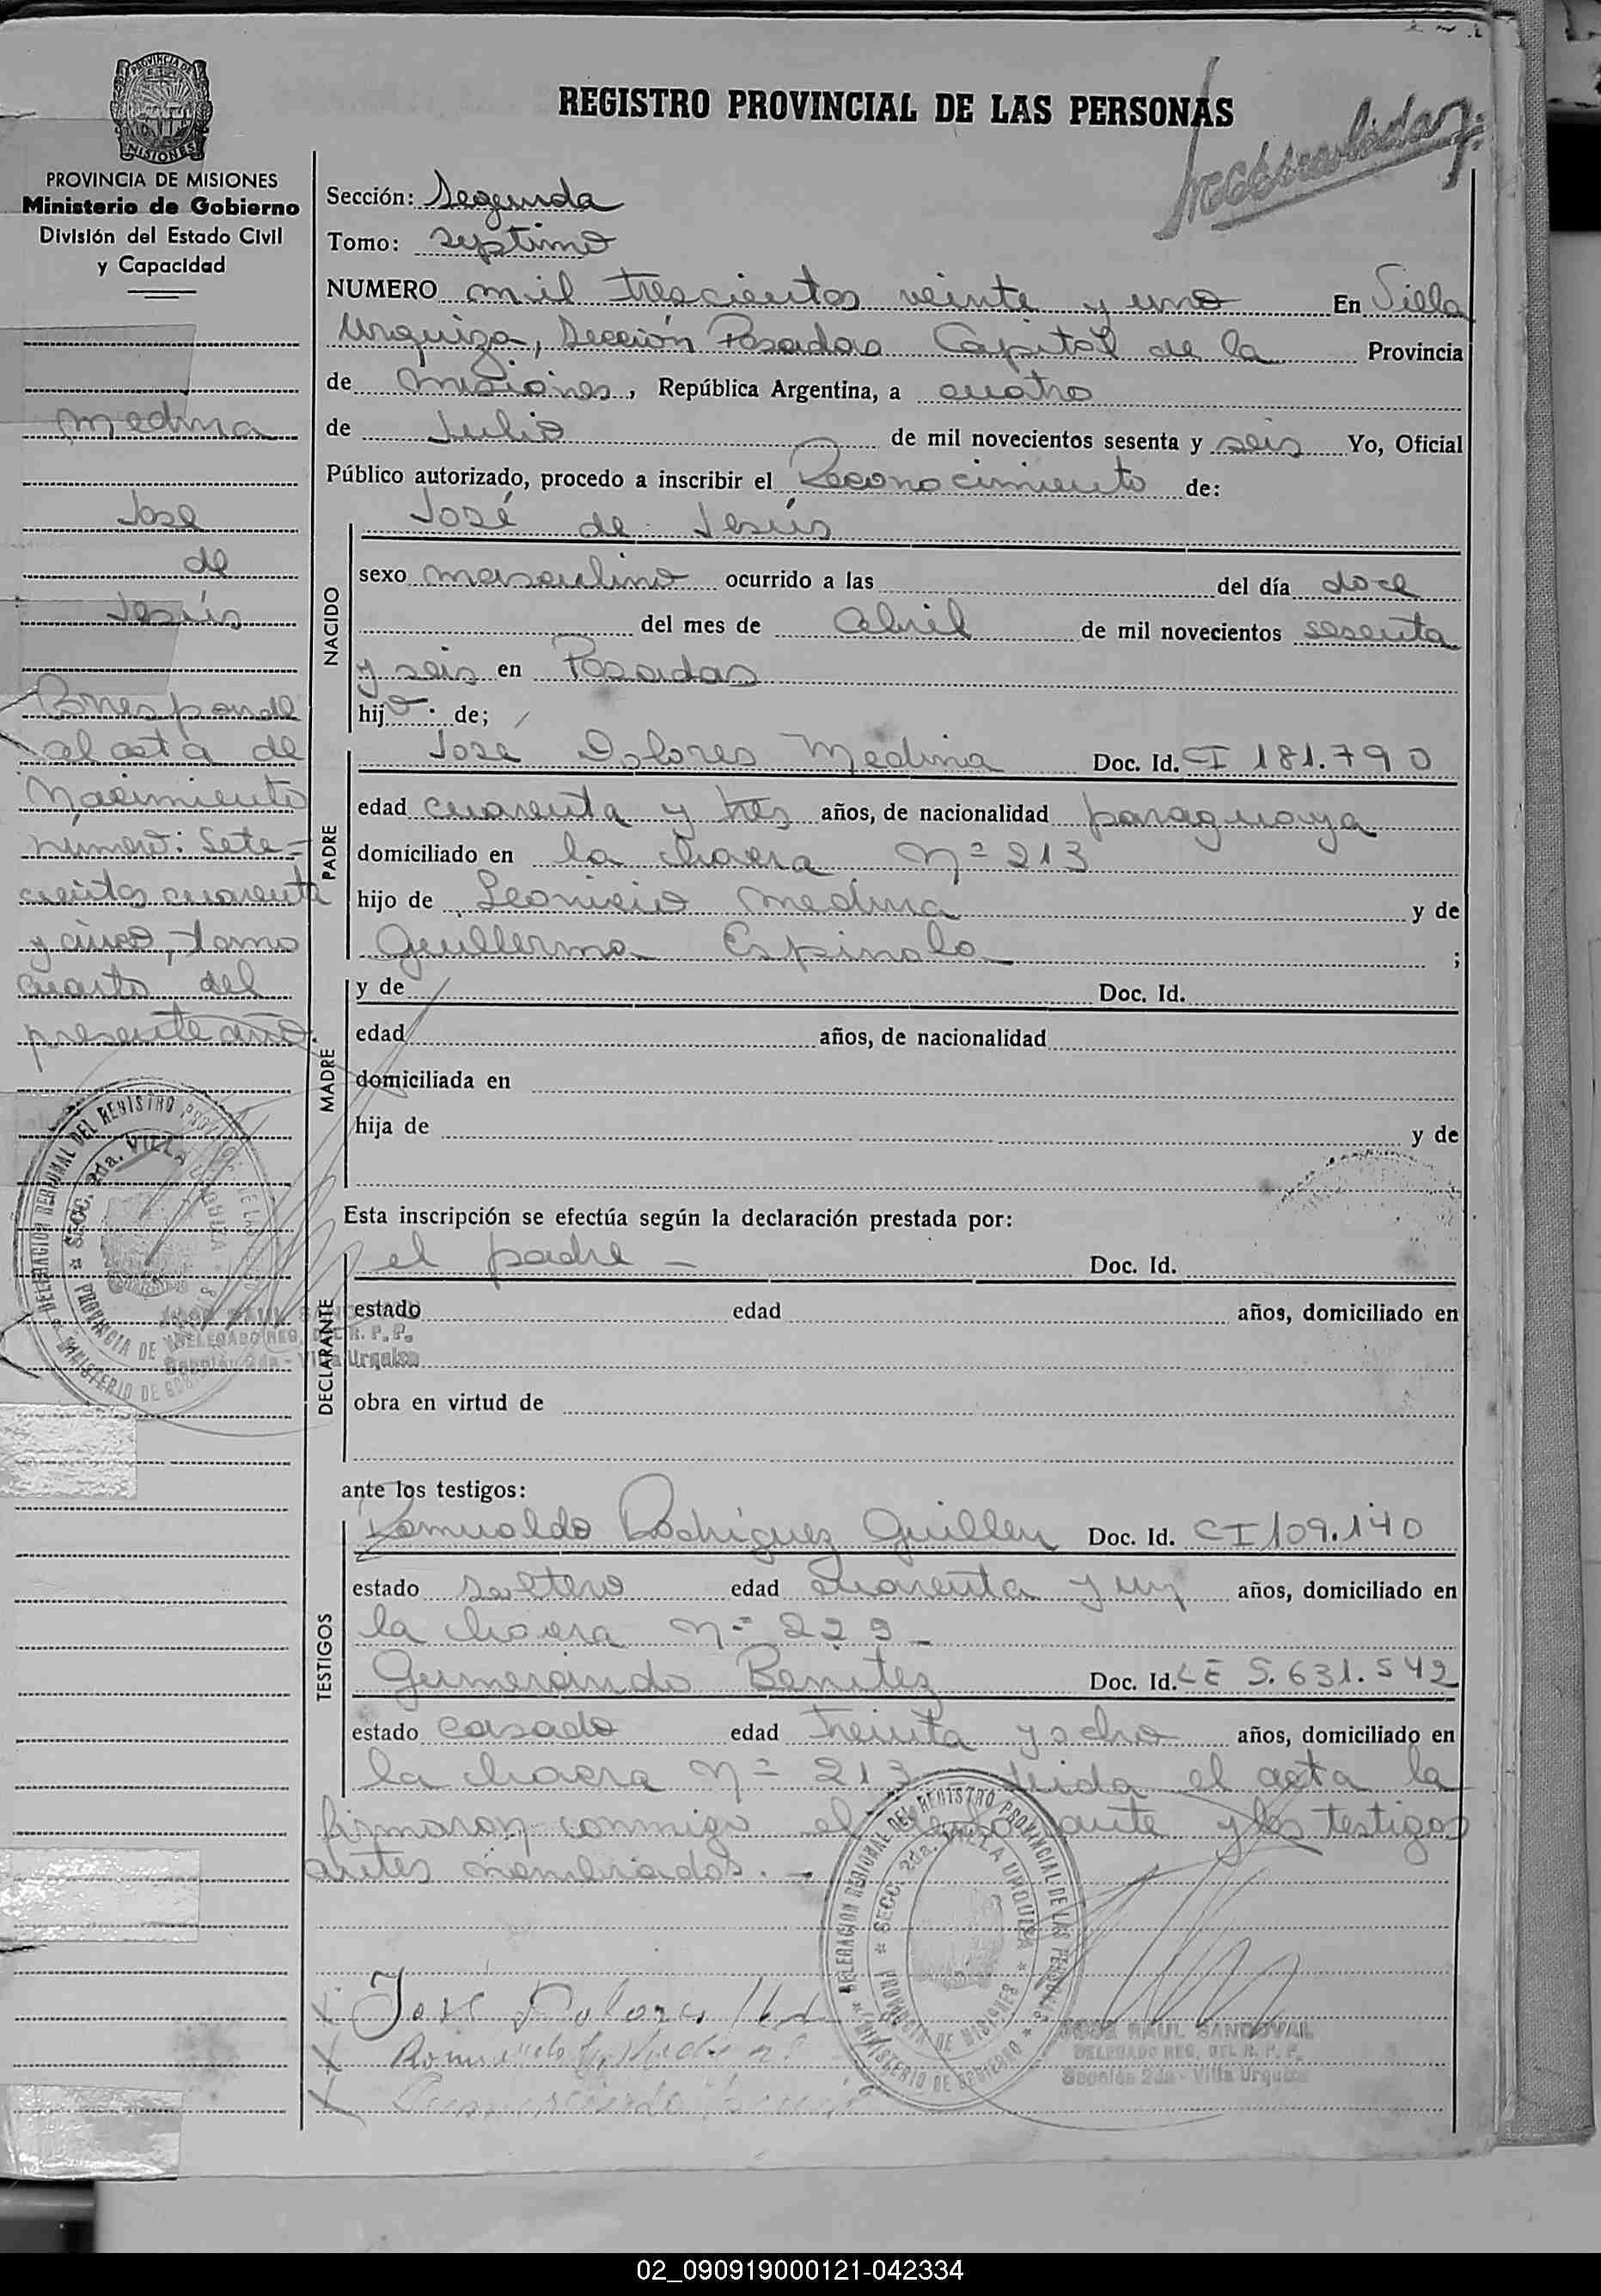 PROVINCIA DE MISIONES
PROVINCIA DE MISIONES
Ministerio de Gobierno
División del Estado Civil
y Capacidad
Medina
José
de
Jesús
Corresponde
al acta de
Nacimiento
número: Sete-
cientos cuarenta
y cinco, tomo
cuarto del
presente año.
DELEGACION REGIONAL DEL REGISTRO PROVINCIAL DE LAS
SECC. 2da. VILLA URQUIZA
PROVINCIA DE
MINISTERIO DE
JOSE RAUL
DELEGADO REG. DEL R. P. P.
Sección 2da - Villa Urquiza
REGISTRO PROVINCIAL DE LAS PERSONAS
Sección: Segunda
Tomo: septimo
NUMERO mil trescientos veinte y uno En Villa
Urquiza, Sección Posadas Capital de la Provincia
de Misiones, República Argentina, a cuatro
de Julio de mil novecientos sesenta y seis Yo, Oficial
Público autorizado, procedo a inscribir el Reconocimiento de:
NACIDO
José de Jesús
sexo masculino ocurrido a las del día doce
del mes de Abril de mil novecientos sesenta
y seis en Posadas
hijo. de;
PADRE
José Dolores Medina Doc. Id. CI 181.790
edad cuarenta y tres años, de nacionalidad paraguaya
domiciliado en la chacra Nº 213
hijo de Leonicio Medina y de
Guillerma Espinola ;
MADRE
y de Doc. Id.
edad años, de nacionalidad
domiciliada en
hija de y de
Esta inscripción se efectúa según la declaración prestada por:
DECLARANTE
el padre - Doc. Id.
estado edad años, domiciliado en
obra en virtud de
ante los testigos:
TESTIGOS
Romualdo Rodriguez Guillen Doc. Id. CI 109.140
estado soltero edad cuarenta y un años, domiciliado en
la chacra Nº 229 -
Gumercindo Benitez Doc. Id. LE 5.631.542
estado casado edad treinta y ocho años, domiciliado en
la chacra Nº 213 leida el acta la
firmaron conmigo el declarante y los testigos
antes nombrados. -
DELEGACION REGIONAL DEL REGISTRO PROVINCIAL DE LAS PERSONAS
SECC. 2da. VILLA URQUIZA
PROVINCIA DE MISIONES
MINISTERIO DE GOBIERNO
José Dolores
JOSE RAUL SANDOVAL
DELEGADO REG. DEL R. P. P.
Sección 2da - Villa Urquiza
02_090919000121-042334